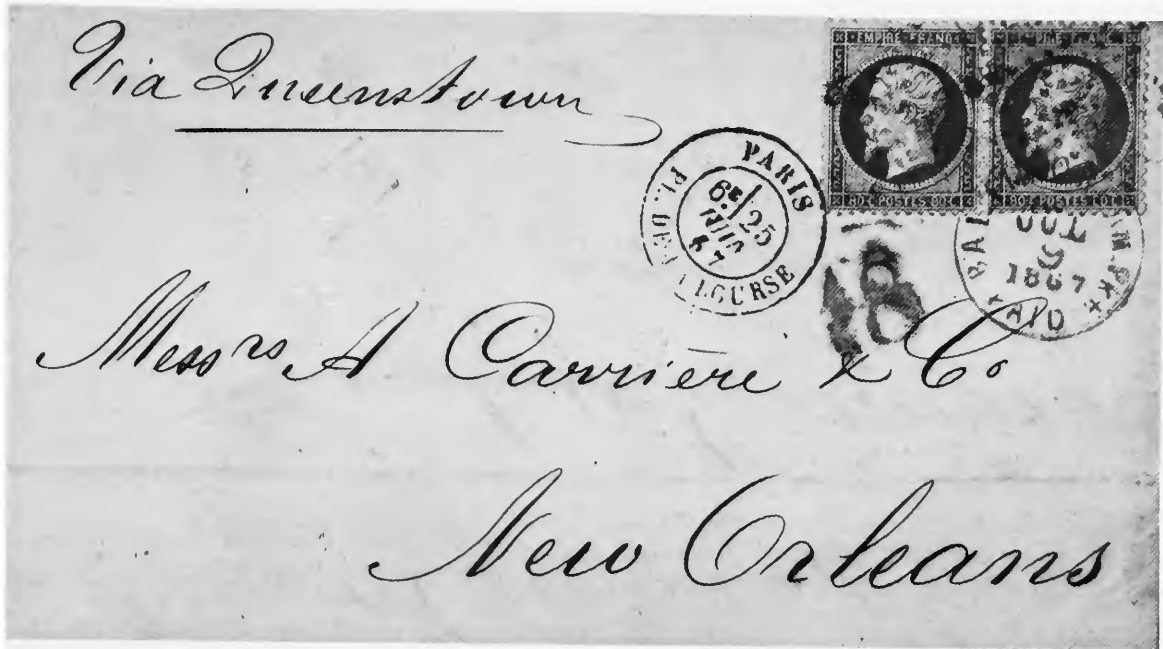 Via Queenstown
EMPIRE FRANC
80 C POSTES 80 C
80 C POSTES 80 C
PARIS
6E 25
JUIN
67
PL. DE LA BOURSE
18
JUL
1867
PAID
Messrs A Carrière & Co
New Orleans